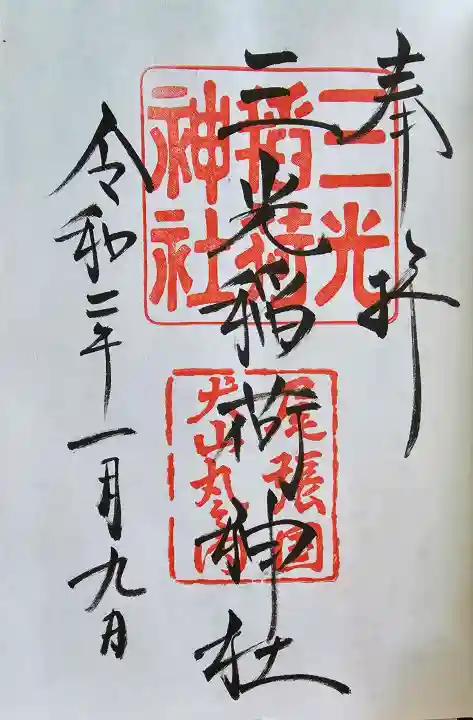 奉拝
三光稲荷神社
令和二年一月九日
三光
稲荷
神社
尾張国
犬山丸之内